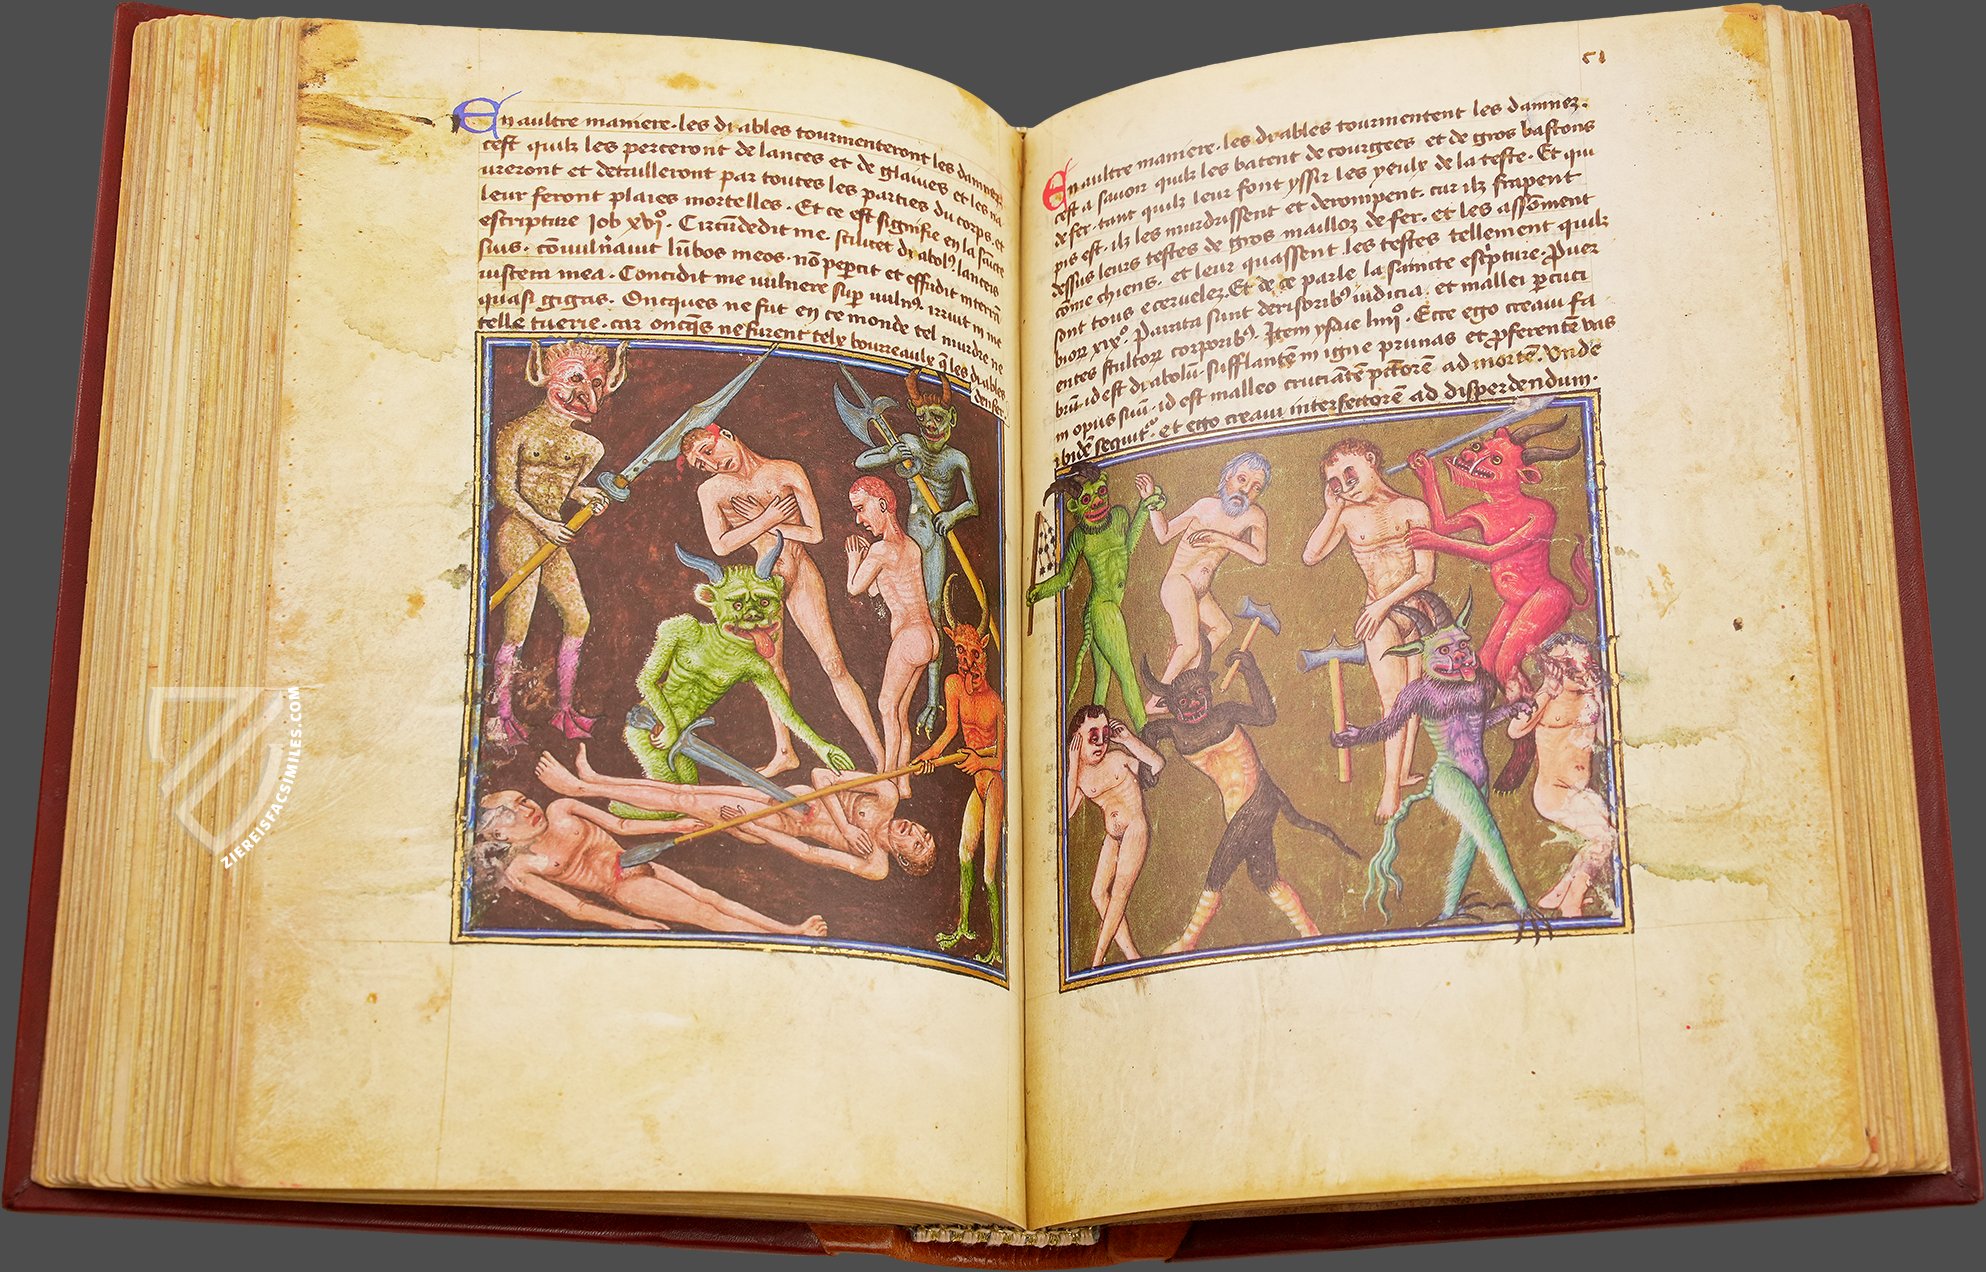 En aultre maniere les diables tourmenteront les dampnez
cest quilz les perceront de lances et de glaives et les na
ureront et detailleront par toutes les parties du corps. et
leur feront plaies mortelles. Et ce est signifie en la saīcte
escripture Iob xvjº. Circūdedit me. scilicet diabolꝰ lanceis
suis. cōvuln̄avit lūbos meos. nō peꝑcit et effudit in terrā
viscera mea. Concidit me vulnere suꝑ vulnꝰ. irruit in me
quasi gigas. Oncques ne fut en ce monde tel murdre ne
telle tuerie. car oncq̄s ne furent telz bourreaulx q̄ les diables
denfer.
51
En aultre maniere. les diables tourmentent les damnez.
cest a savoir quilz les batent de courgees et de gros bastons
de fer. tant quilz leur font yssir les yeulx de la teste. Et qui
pis est. ilz les murdrissent et derompent. car ilz frapent
dessus leurs testes de gros mailloz de fer. et les assōment
cōme chiens. et leur quassent les testes tellement quilz
sont tous ecervelez. Et de ce parle la saincte escͥpture Prover
biorꝝ xixº. Parata sunt derisoribꝰ iudicia. et mallei ꝑcuci
entes stultorꝝ corporibꝰ. Item ysaie liiijº. Ecce ego creavi fa
brū. id est diabolū. sufflantē in igne prunas et ꝓferentē vas
in opus suū. id est malleo cruciātē pctōrē ad mortē. Unde
ibidē sequitͬ. et ego creavi interfectorē ad disperdendum.
ZIEREISFACSIMILES.COM